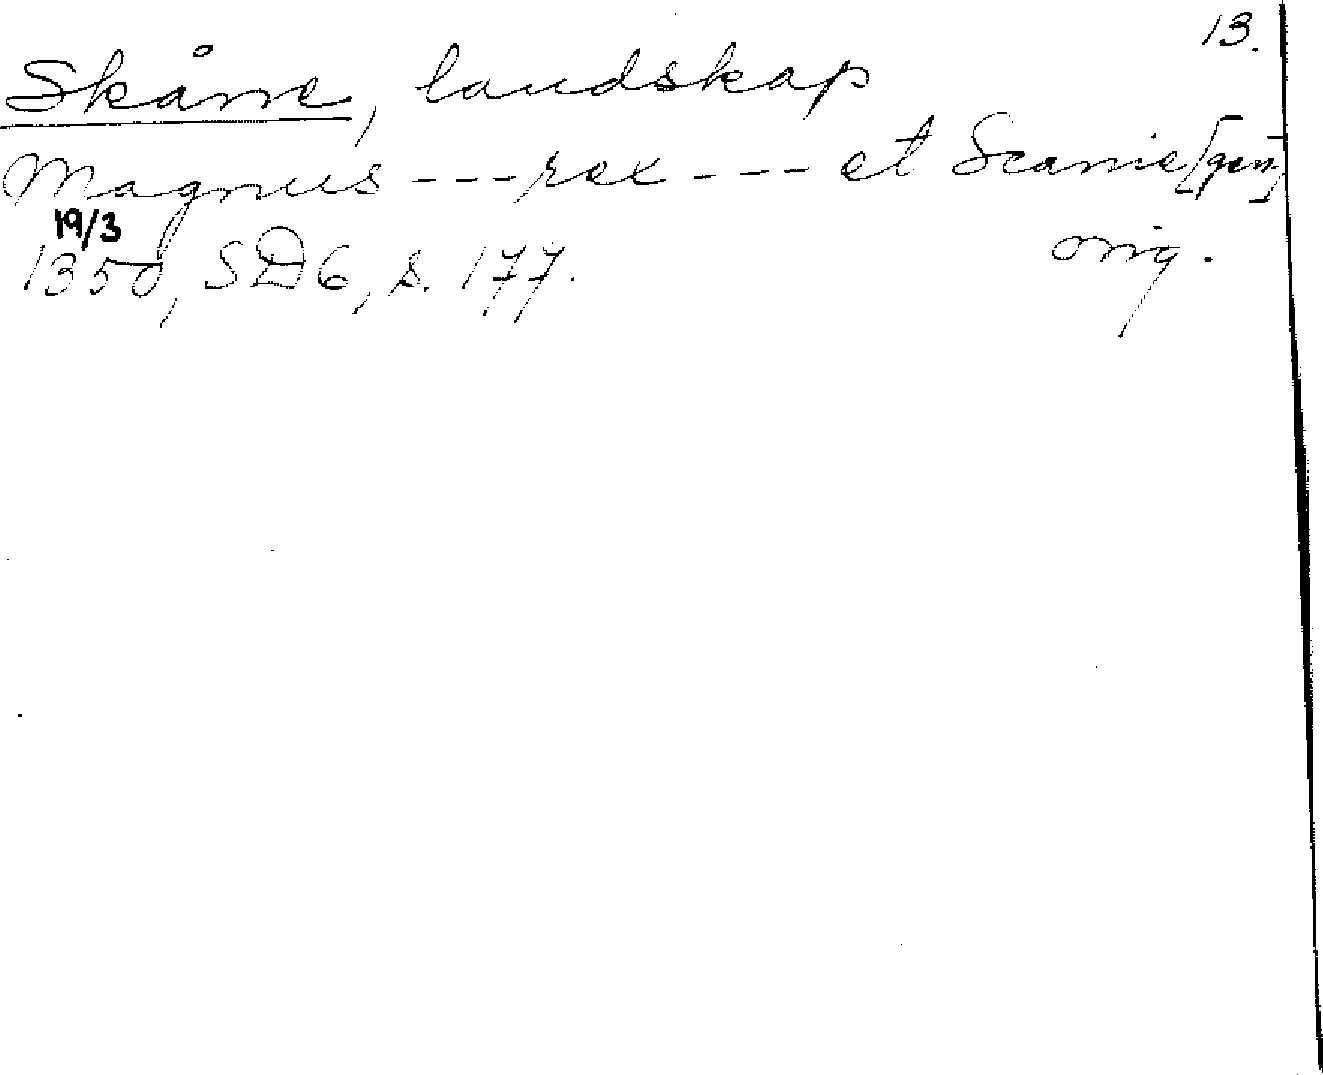 13.
Skåne, landskap
Magnus --- rex --- et Scanie [gen]
19/3
1350, SD6, s. 177. orig.